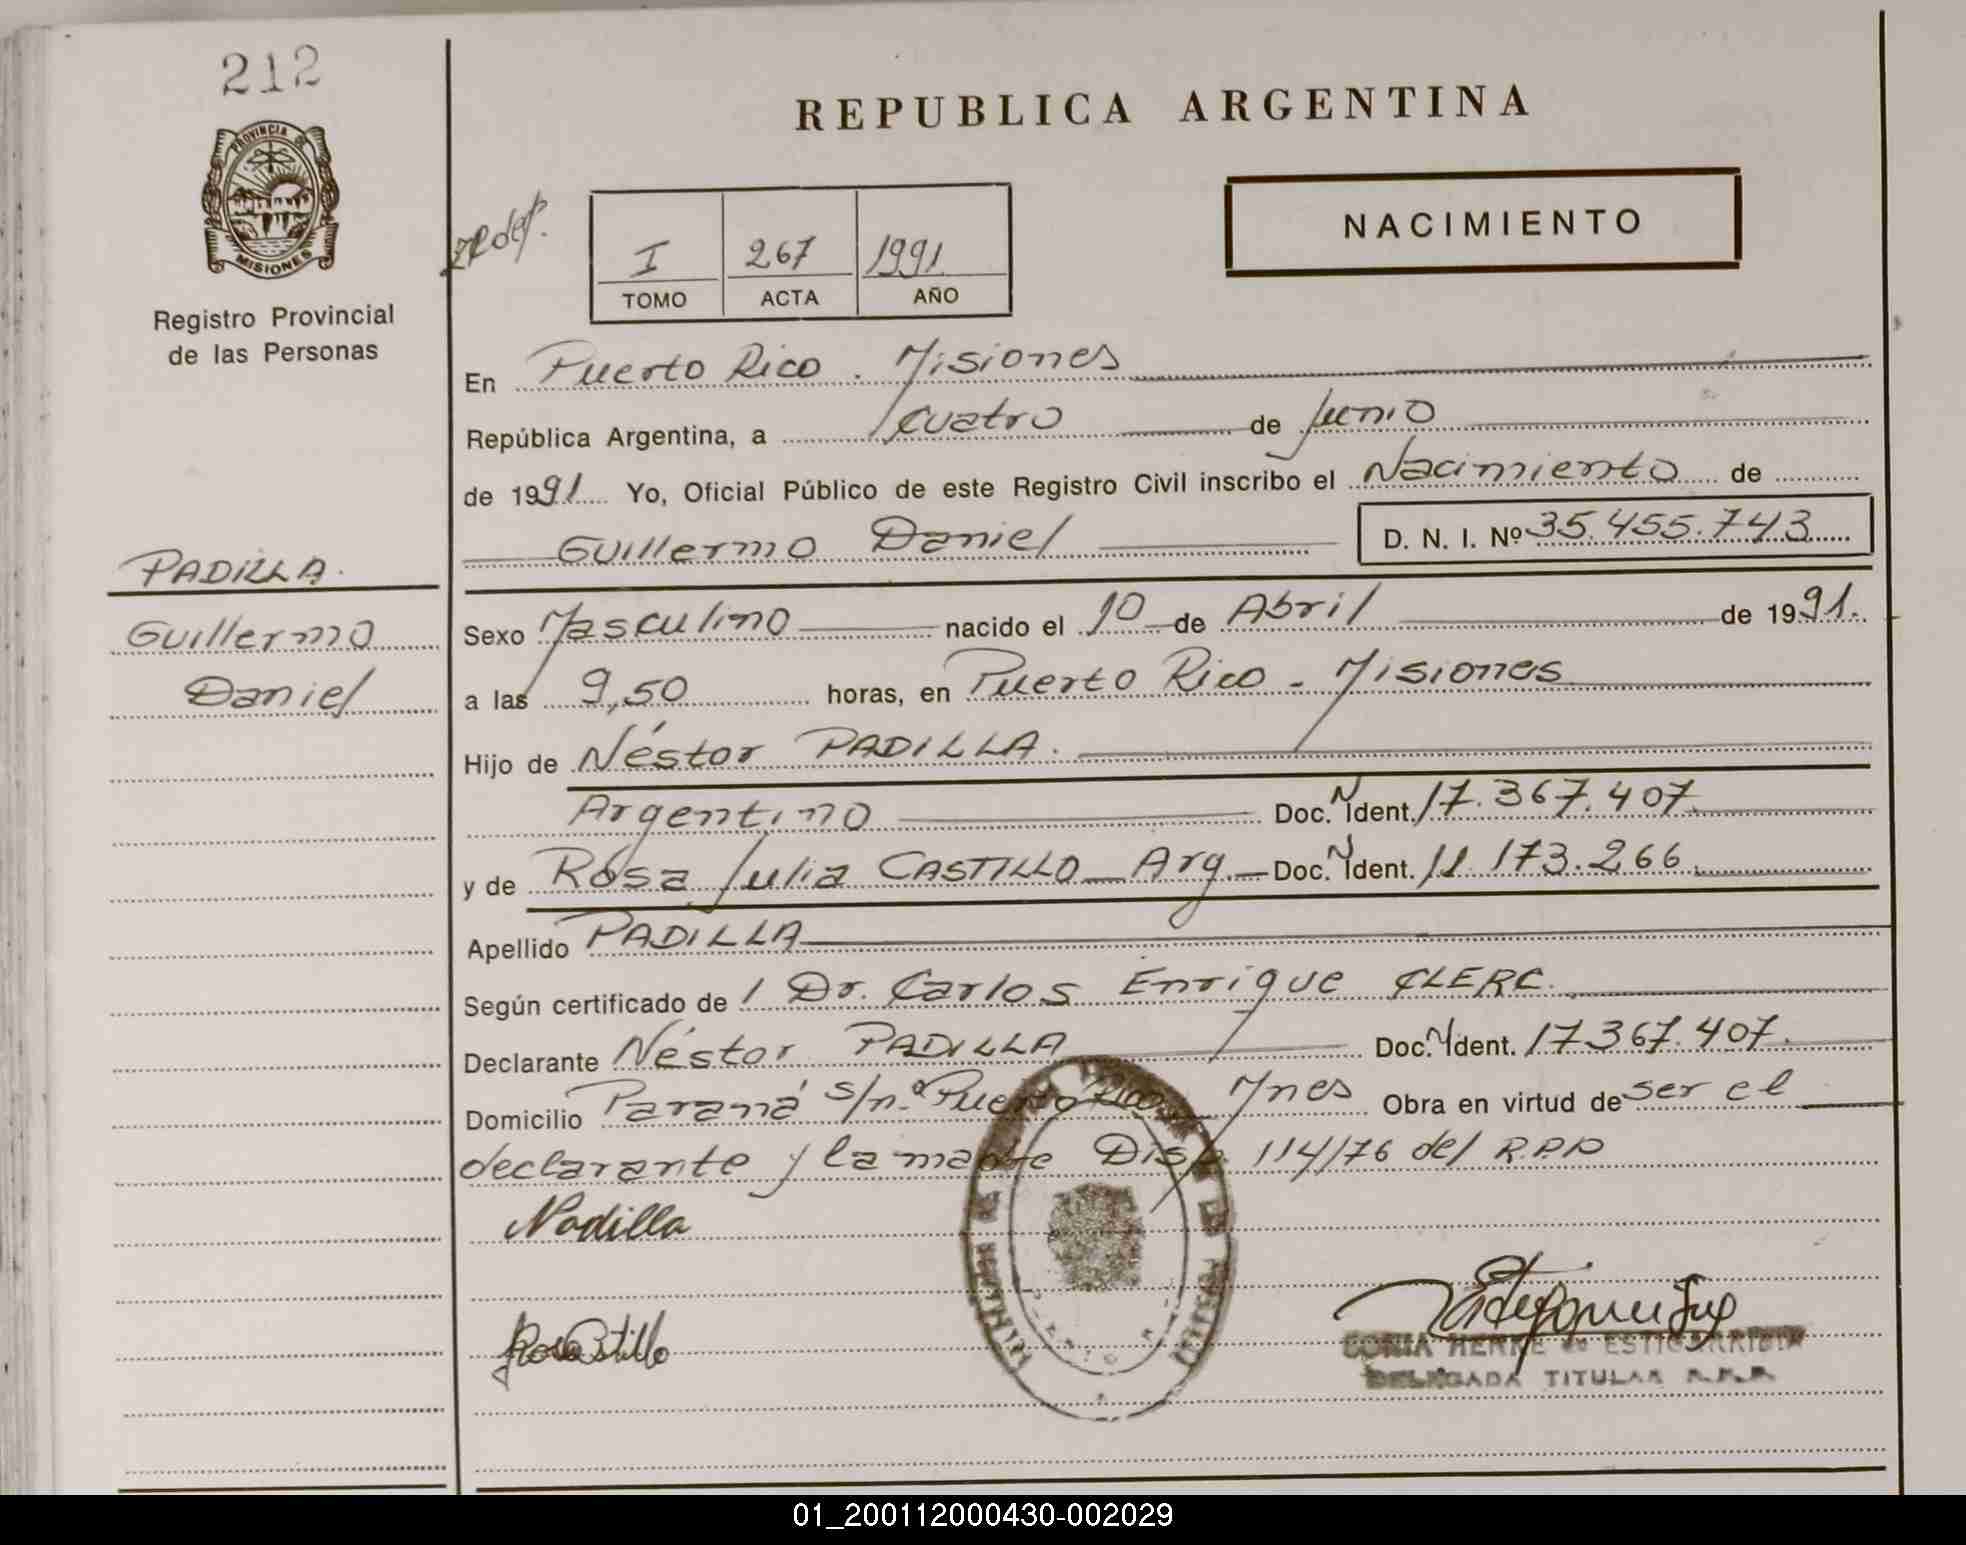 212
PROVINCIA DE
MISIONES
Registro Provincial
de las Personas
REPUBLICA ARGENTINA
NACIMIENTO
I 267 1991
TOMO ACTA AÑO
En Puerto Rico. Misiones
República Argentina, a Cuatro de Junio
de 1991 Yo, Oficial Público de este Registro Civil inscribo el Nacimiento de
Guillermo Daniel D. N. I. Nº 35.455.743
PADILLA.
Guillermo
Daniel
Sexo Masculino nacido el 10 de Abril de 1991.
a las 9,50 horas, en Puerto Rico - Misiones
Hijo de Néstor PADILLA.
Argentino Doc. N Ident. 17.367.407
y de Rosa Julia CASTILLO - Arg. - Doc. N Ident. 11.173.266
Apellido PADILLA
Según certificado de 1 Dr. Carlos Enrique CLERC.
Declarante Néstor PADILLA Doc. N Ident. 17.367.407.
Domicilio Paraná s/nº Puerto Rico Mnes Obra en virtud de ser el
declarante y la madre Disp. 114/76 del R.P.P
NPadilla
Rosa Castillo
SONIA HENKE de ESTIGARRIBIA
DELEGADA TITULAR R.P.P.
01_200112000430-002029